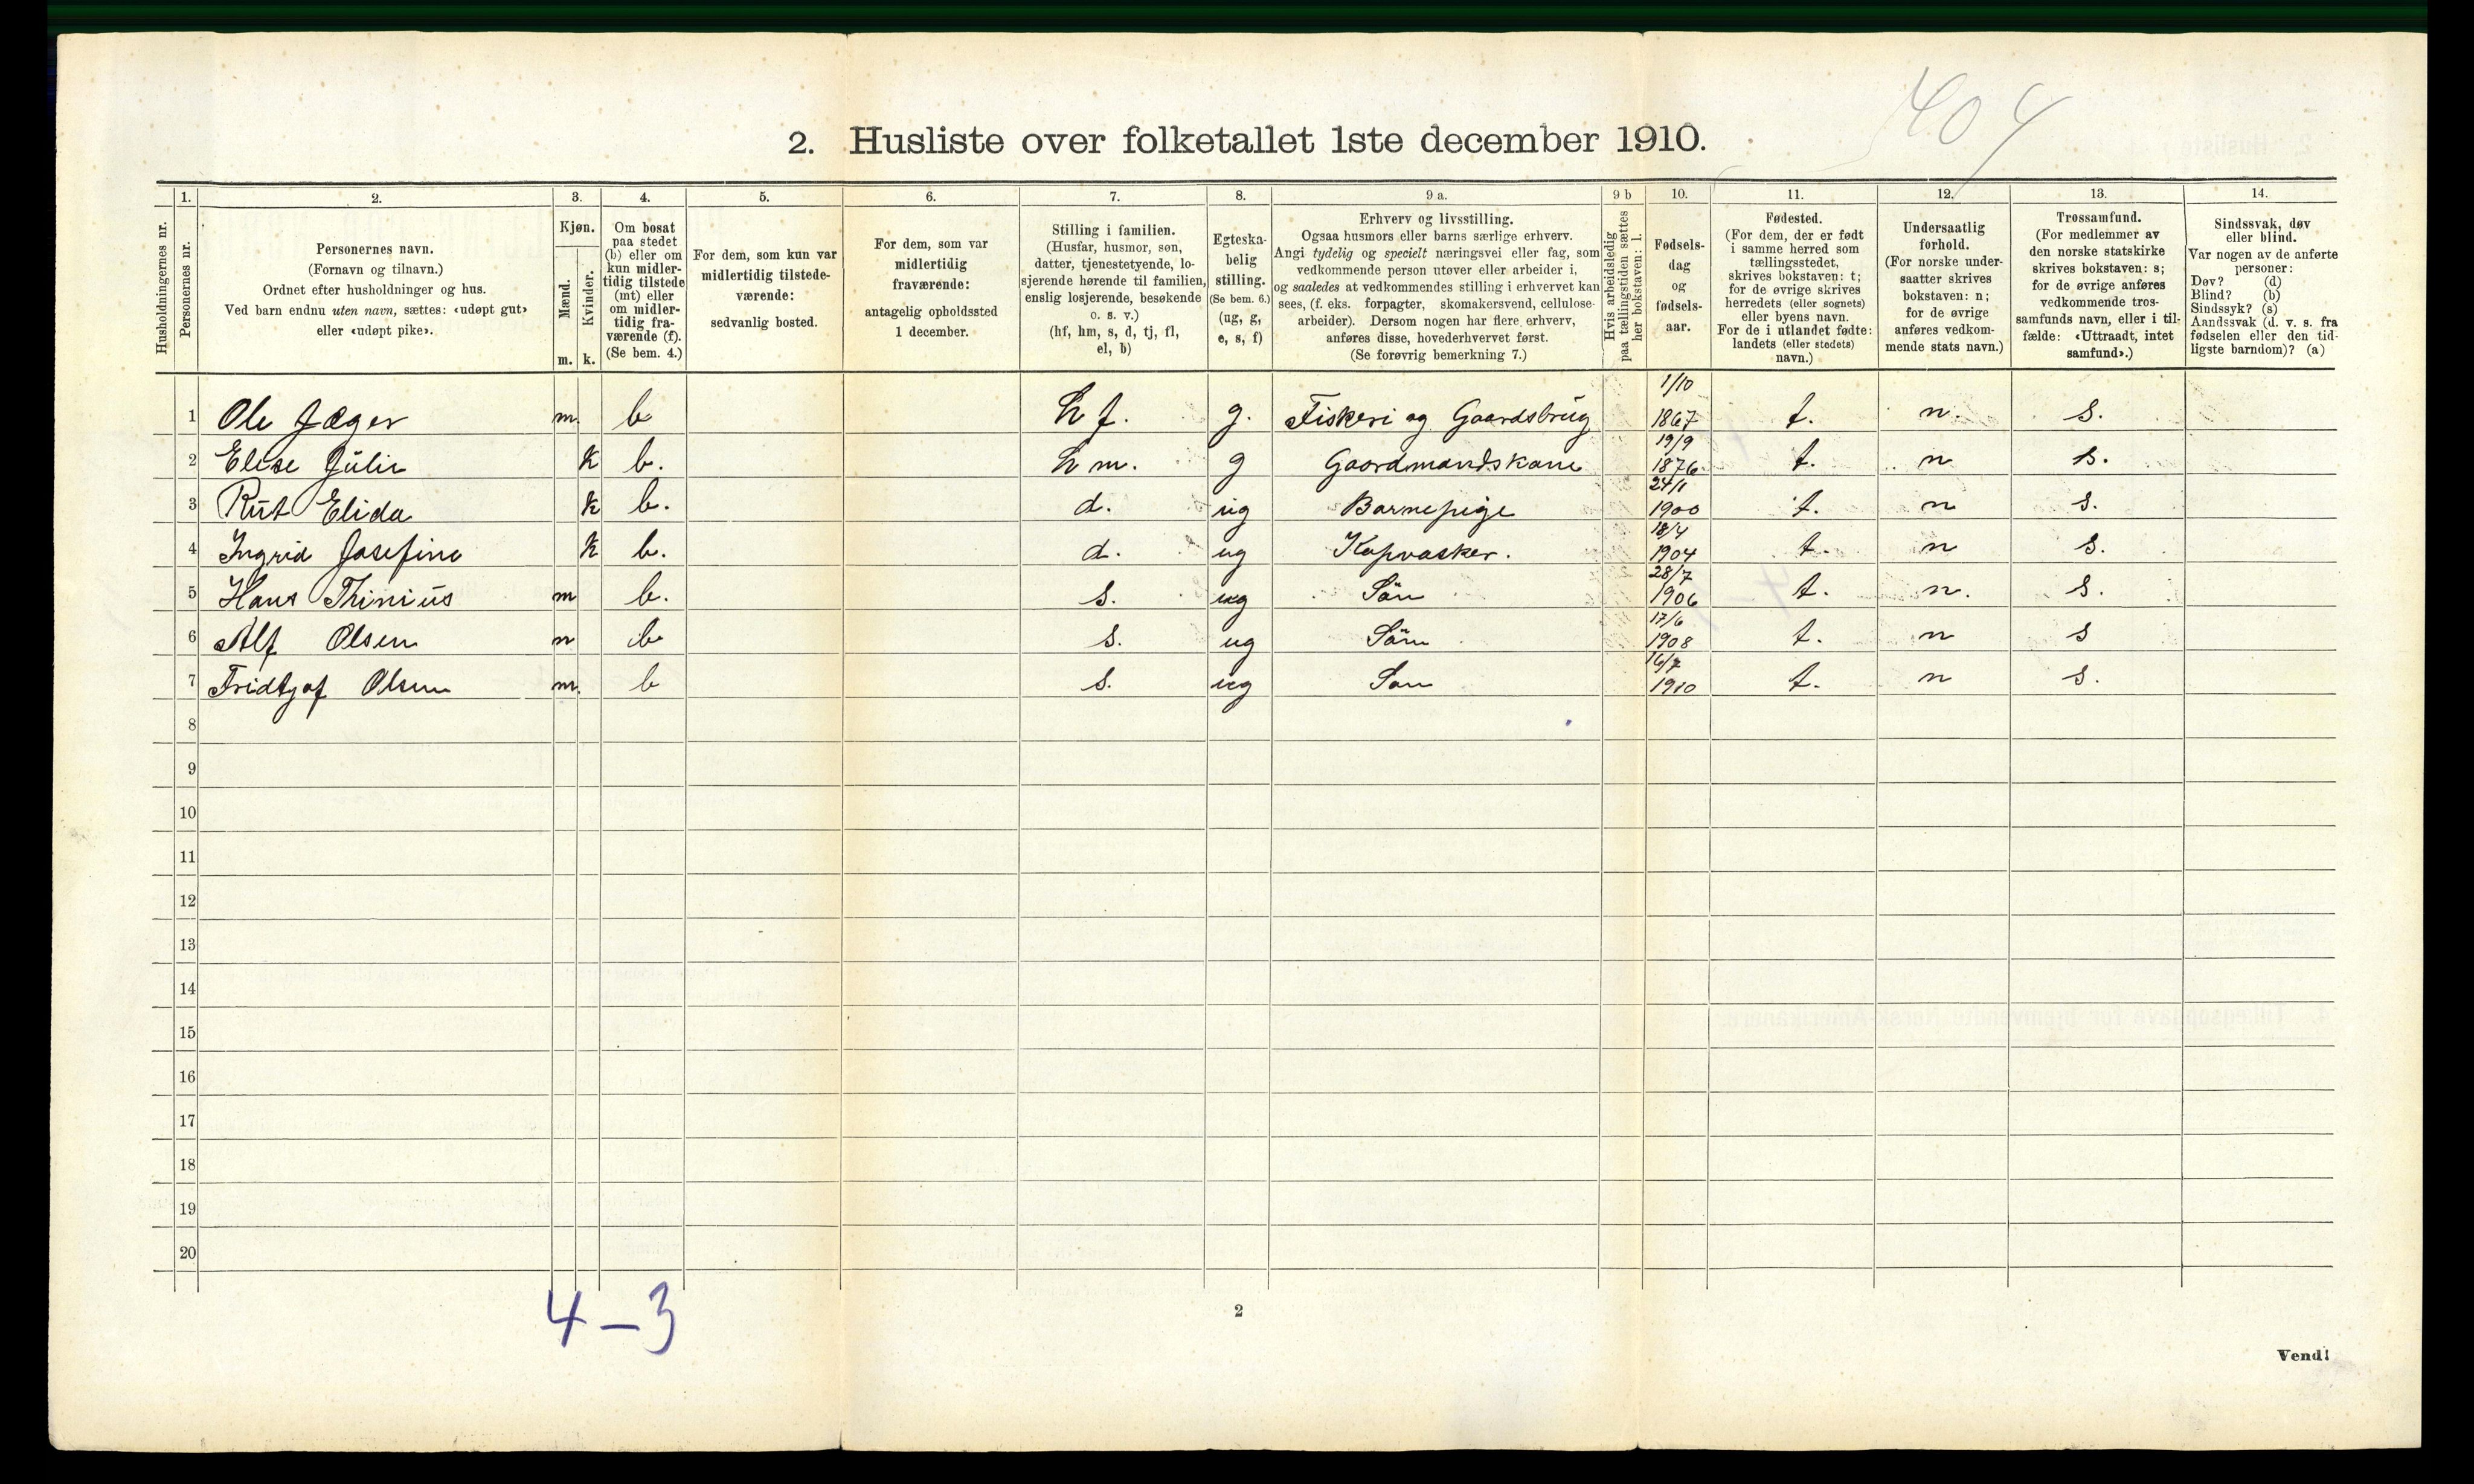 404
2. Husliste over folketallet 1ste december 1910.
Husholdningernes nr.
1.
Personernes nr.
2.
Personernes navn.
(Fornavn og tilnavn.)
Ordnet efter husholdninger og hus.
Ved barn endnu uten navn, sættes: «udøpt gut»
eller «udøpt pike».
3.
Kjøn.
Mænd.
Kvinder.
m. k.
4.
Om bosat
paa stedet
(b) eller om
kun midler-
tidig tilstede
(mt) eller
om midler-
tidig fra-
værende (f).
(Se bem. 4.)
5.
For dem, som kun var
midlertidig tilstede-
værende:
sedvanlig bosted.
6.
For dem, som var
midlertidig
fraværende:
antagelig opholdssted
1 december.
7.
Stilling i familien.
(Husfar, husmor, søn,
datter, tjenestetyende, lo-
sjerende hørende til familien,
enslig losjerende, besøkende
o. s. v.)
(hf, hm, s, d, tj, fl,
el, b)
8.
Egteska-
belig
stilling.
(Se bem. 6.)
(ug, g,
e, s, f)
9 a.
Erhverv og livsstilling.
Ogsaa husmors eller barns særlige erhverv.
Angi tydelig og specielt næringsvei eller fag, som
vedkommende person utøver eller arbeider i,
og saaledes at vedkommendes stilling i erhvervet kan
sees, (f. eks. forpagter, skomakersvend, cellulose-
arbeider). Dersom nogen har flere erhverv,
anføres disse, hovederhvervet først.
(Se forøvrig bemerkning 7.)
9 b
Hvis arbeidsledig
paa tællingstiden sættes
her bokstaven: l.
10.
Fødsels-
dag
og
fødsels-
aar.
11.
Fødested.
(For dem, der er født
i samme herred som
tællingsstedet,
skrives bokstaven: t;
for de øvrige skrives
herredets (eller sognets)
eller byens navn.
For de i utlandet fødte:
landets (eller stedets)
navn.)
12.
Undersaatlig
forhold.
(For norske under-
saatter skrives
bokstaven: n;
for de øvrige
anføres vedkom-
mende stats navn.)
13.
Trossamfund.
(For medlemmer av
den norske statskirke
skrives bokstaven: s;
for de øvrige anføres
vedkommende tros-
samfunds navn, eller i til-
fælde: «Uttraadt, intet
samfund».)
14.
Sindssvak, døv
eller blind.
Var nogen av de anførte
personer:
Døv? (d)
Blind? (b)
Sindssyk? (s)
Aandssvak (d. v. s. fra
fødselen eller den tid-
ligste barndom)? (a)
1 Ole Jæger m. b hf. g. Fiskeri og Gaardsbrug 1/10 1867 t. n. s.
2 Elise Julie k b. hm. g Gaardmandskone 19/9 1876 t. n s.
3 Rut Elida k b. d. ug Barnepige 24/1 1900 t. n s.
4 Ingrid Josefine k b. d. ug Kopvasker. 18/4 1904 t. n s.
5 Hans Thinius m b. s. ug Sön 28/7 1906 t. n. s.
6 Alf Olsen m b s. ug Sön 17/6 1908 t. n s
7 Fridtjof Olsen m. b s. ug Son 16/7 1910 t. n s.
8
9
10
11
12
13
14
15
16
17
18
19
20
4 – 3
2
Vend!